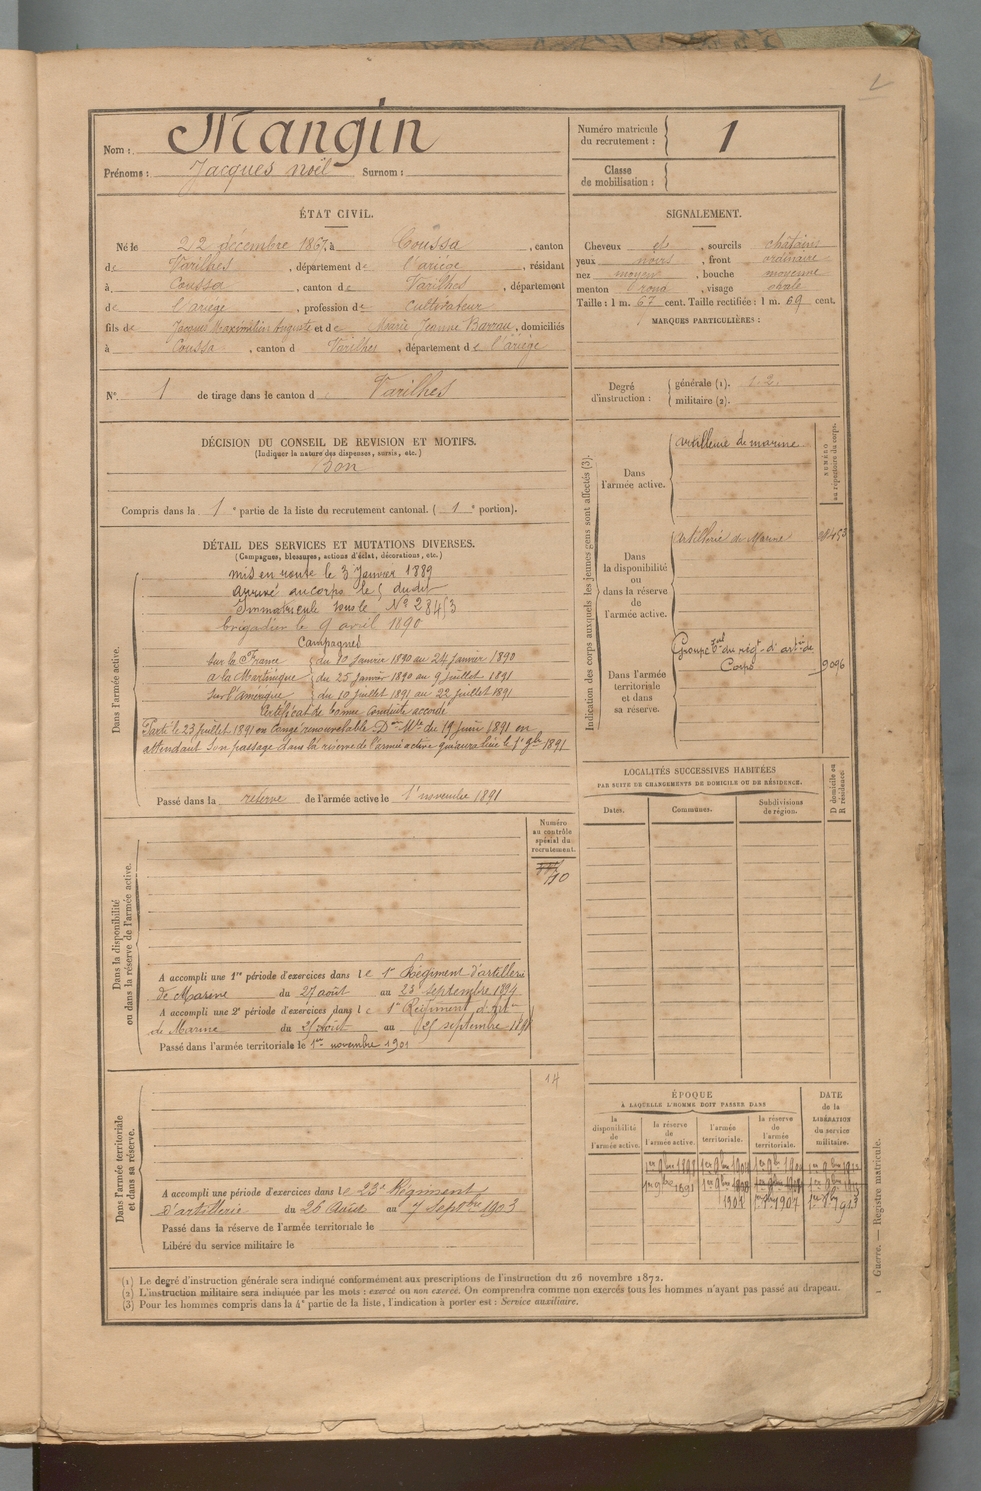 Nom : Mangin
Prénoms : Jacques noël Surnom :
Numéro matricule du recrutement : 1
Classe de mobilisation :
ÉTAT CIVIL.
Né le 22 décembre 1867, à Coussa, canton
de Varilhes, département de l'ariège, résidant
à Coussa, canton de Varilhes, département
de l'ariège, profession de Cultivateur
fils de Jacques Maximilien Auguste et de Marie Jeanne Barrau, domiciliés
à Coussa, canton d Varilhes, département de l'ariège
N° 1 de tirage dans le canton d Varilhes
SIGNALEMENT.
Cheveux et, sourcils châtains
yeux noirs, front ordinaire
nez moyen, bouche moyenne
menton rond, visage ovale
Taille : 1 m. 67 cent. Taille rectifiée : 1 m. 69 cent.
MARQUES PARTICULIÈRES :
Degré d'instruction : générale (1). 1.2.
militaire (2).
DÉCISION DU CONSEIL DE REVISION ET MOTIFS.
(Indiquer la nature des dispenses, sursis, etc.)
Bon
Compris dans la 1e partie de la liste du recrutement cantonal. (1e portion).
DÉTAIL DES SERVICES ET MUTATIONS DIVERSES.
(Campagnes, blessures, actions d'éclat, décorations, etc.)
Dans l'armée active.
mis en route le 3 Janvier 1889
arrivé au corps le dudit
Immatriculé sous le N° 28453
brigadier le 9 avril 1890
Campagnes
Sur le France du 10 janvier 1890 au 24 janvier 1890
a la Martinique du 25 janvier 1890 au 9 juillet 1891
Sur l'Amérique du 10 juillet 1891 au 22 juillet 1891
Certificat de bonne conduite accordé
Parti le 23 juillet 1891 en congé renouvelable Don Mle du 19 juin 1891 en
attendant son passage dans la réserve de l'armée active qui aura lieu le 1er 9bre 1891
Passé dans la réserve de l'armée active le 1r novembre 1891
Indication des corps auxquels les jeunes gens sont affectés (3).
NUMÉRO au répertoire du corps.
Dans l'armée active.
artillerie de marine
Dans la disponibilité ou dans la réserve de l'armée active.
artillerie de Marine 28453
Dans l'armée territoriale et dans sa réserve.
Groupe du régt d'artie de Corps 9096
LOCALITÉS SUCCESSIVES HABITÉES
PAR SUITE DE CHANGEMENTS DE DOMICILE OU DE RÉSIDENCE.
Dates. Communes. Subdivisions de région.
D domicile ou R résidence.
Dans la disponibilité ou dans la réserve de l'armée active.
Numéro au contrôle spécial du recrutement.
A accompli une 1re période d'exercices dans le 1r Régiment d'artillerie
de Marine du 27 août au 23 septembre 1894
A accompli une 2e période d'exercices dans le 1er Régiment d'Art
de Marine du août au septembre
Passé dans l'armée territoriale le 1er novembre 1901
Dans l'armée territoriale et dans sa réserve.
14
A accompli une période d'exercices dans le 23e Régiment
d'artillerie du 26 Août au 7 Sepbre 1903
Passé dans la réserve de l'armée territoriale le
Libéré du service militaire le
ÉPOQUE
À LAQUELLE L'HOMME DOIT PASSER DANS
la disponibilité de l'armée active.
la réserve de l'armée active.
l'armée territoriale.
la réserve de l'armée territoriale.
DATE de la LIBÉRATION du service militaire.
1er 9bre 1891
1901 1er 9bre 1907 1913
(1) Le degré d'instruction générale sera indiqué conformément aux prescriptions de l'instruction du 26 novembre 1872.
(2) L'instruction militaire sera indiquée par les mots : exercé ou non exercé. On comprendra comme non exercés tous les hommes n'ayant pas passé au drapeau.
(3) Pour les hommes compris dans la 4e partie de la liste, l'indication à porter est : Service auxiliaire.
Guerre. — Registre matricule.